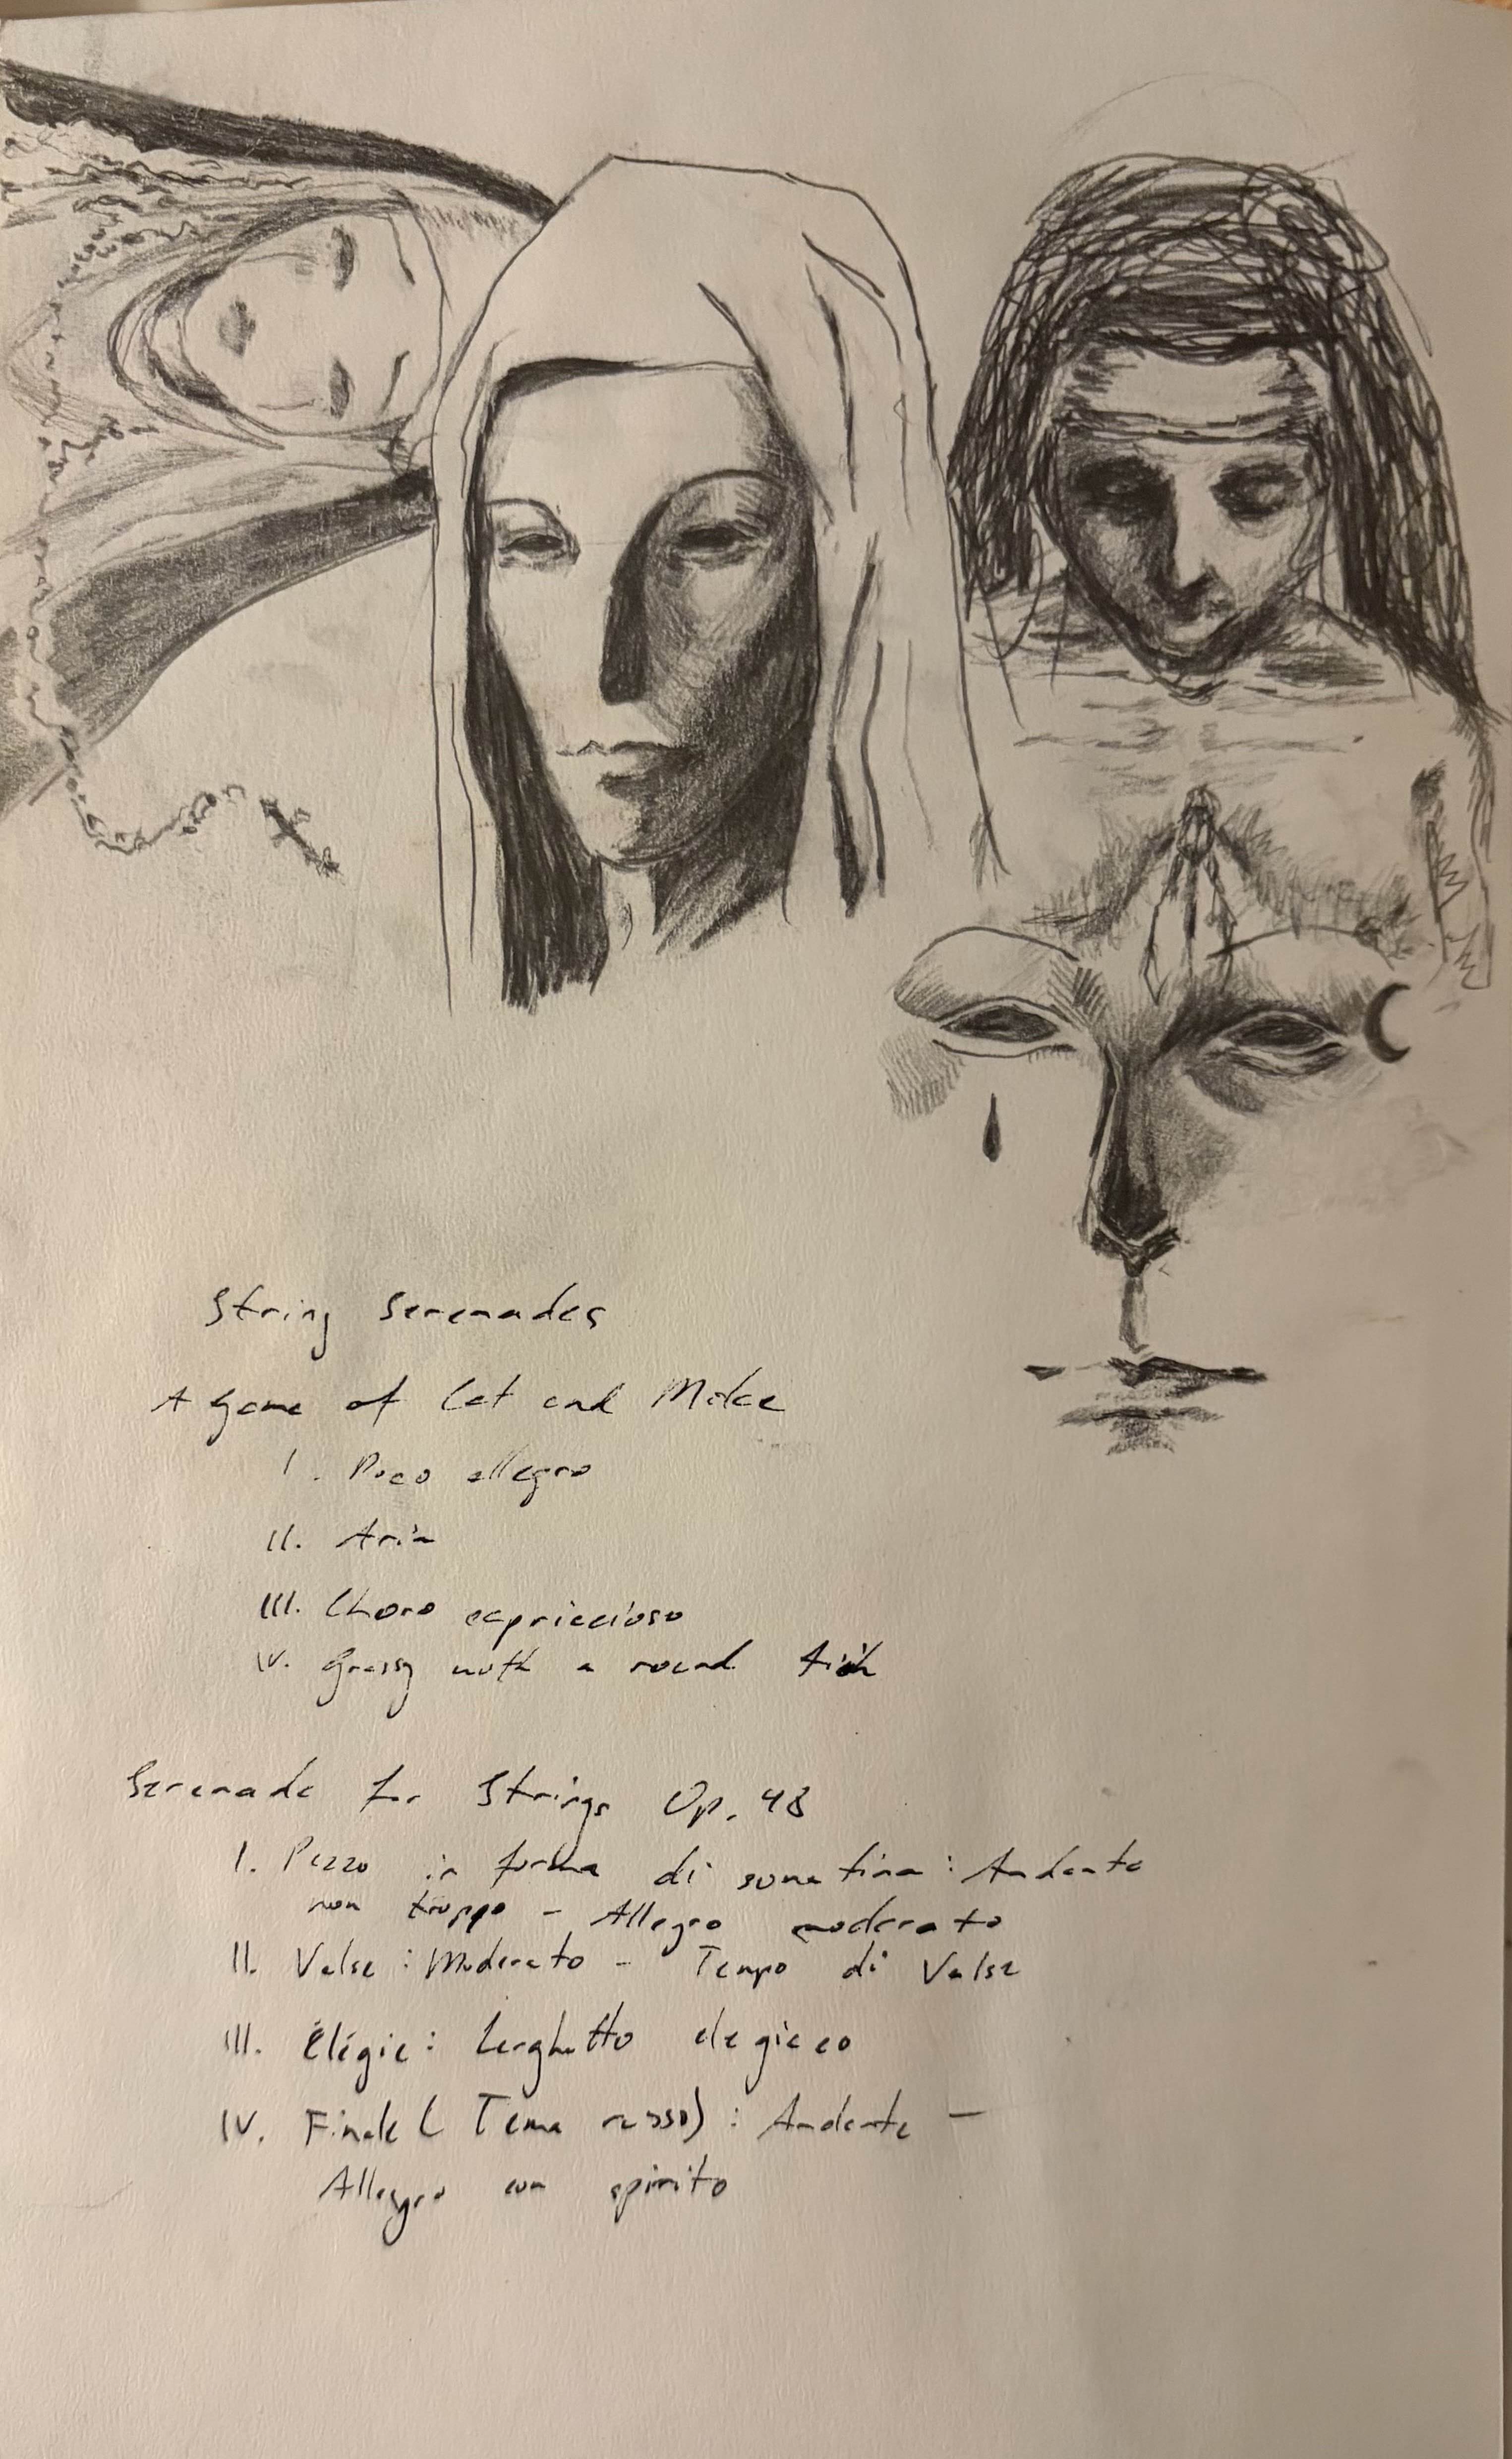 String Serenades
A game of Cat and Mouse
I. Poco allegro
II. Aria
III. Choro capriccioso
IV. with a round
Serenade for Strings Op. 48
I. Pezzo in forma di sonatina: Andante
non troppo - Allegro moderato
II. Valse: Moderato - Tempo di Valse
III. Élégie: Larghetto elegiaco
IV. Finale (Tema russo): Andante -
Allegro con spirito